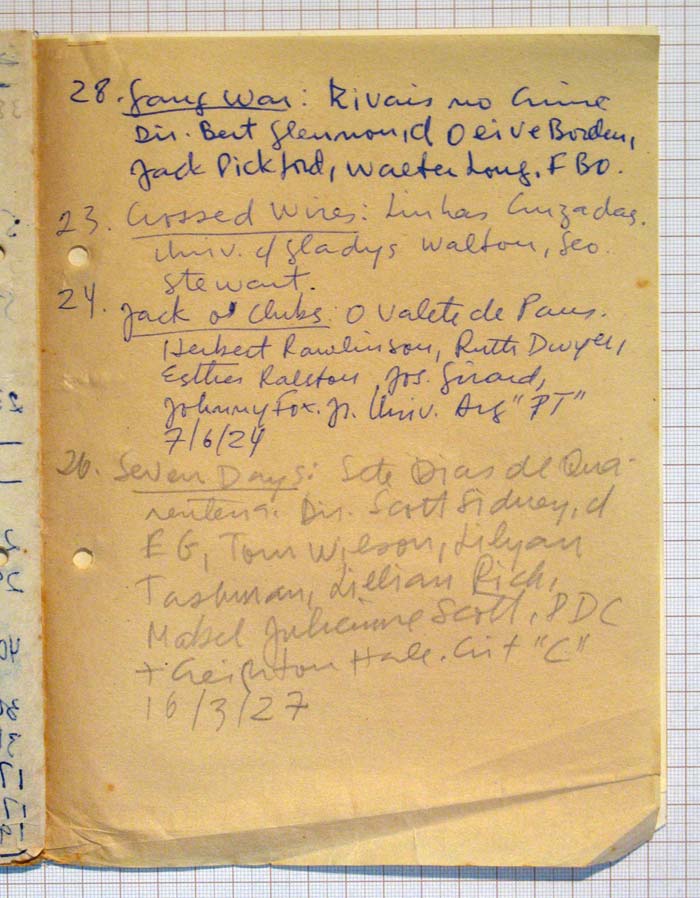 28. Gang War: Rivais no Crime
Dir. Bert Glennon, d Oeive Borden,
Jack Pickford, Walter Long. FBO.
23. Crossed Wires: Linhas Cruzadas.
Univ. d Gladys Walton, Geo.
Stewart.
24. Jack o' Clubs: O Valete de Paus.
Herbert Rawlinson, Ruth Dwyer,
Esther Ralston, Jos. Girard,
Johnny Fox. Jr. Univ. Arg "PT"
7/6/24
26. Seven Days: Sete Dias de Qua-
rentena. Dir. Scott Sidney, d
EG, Tom Wilson, Lilyan
Tashman, Lillian Rich,
Mabel Julienne Scott, PDC
+ Creighton Hale. Crit "C"
16/3/27